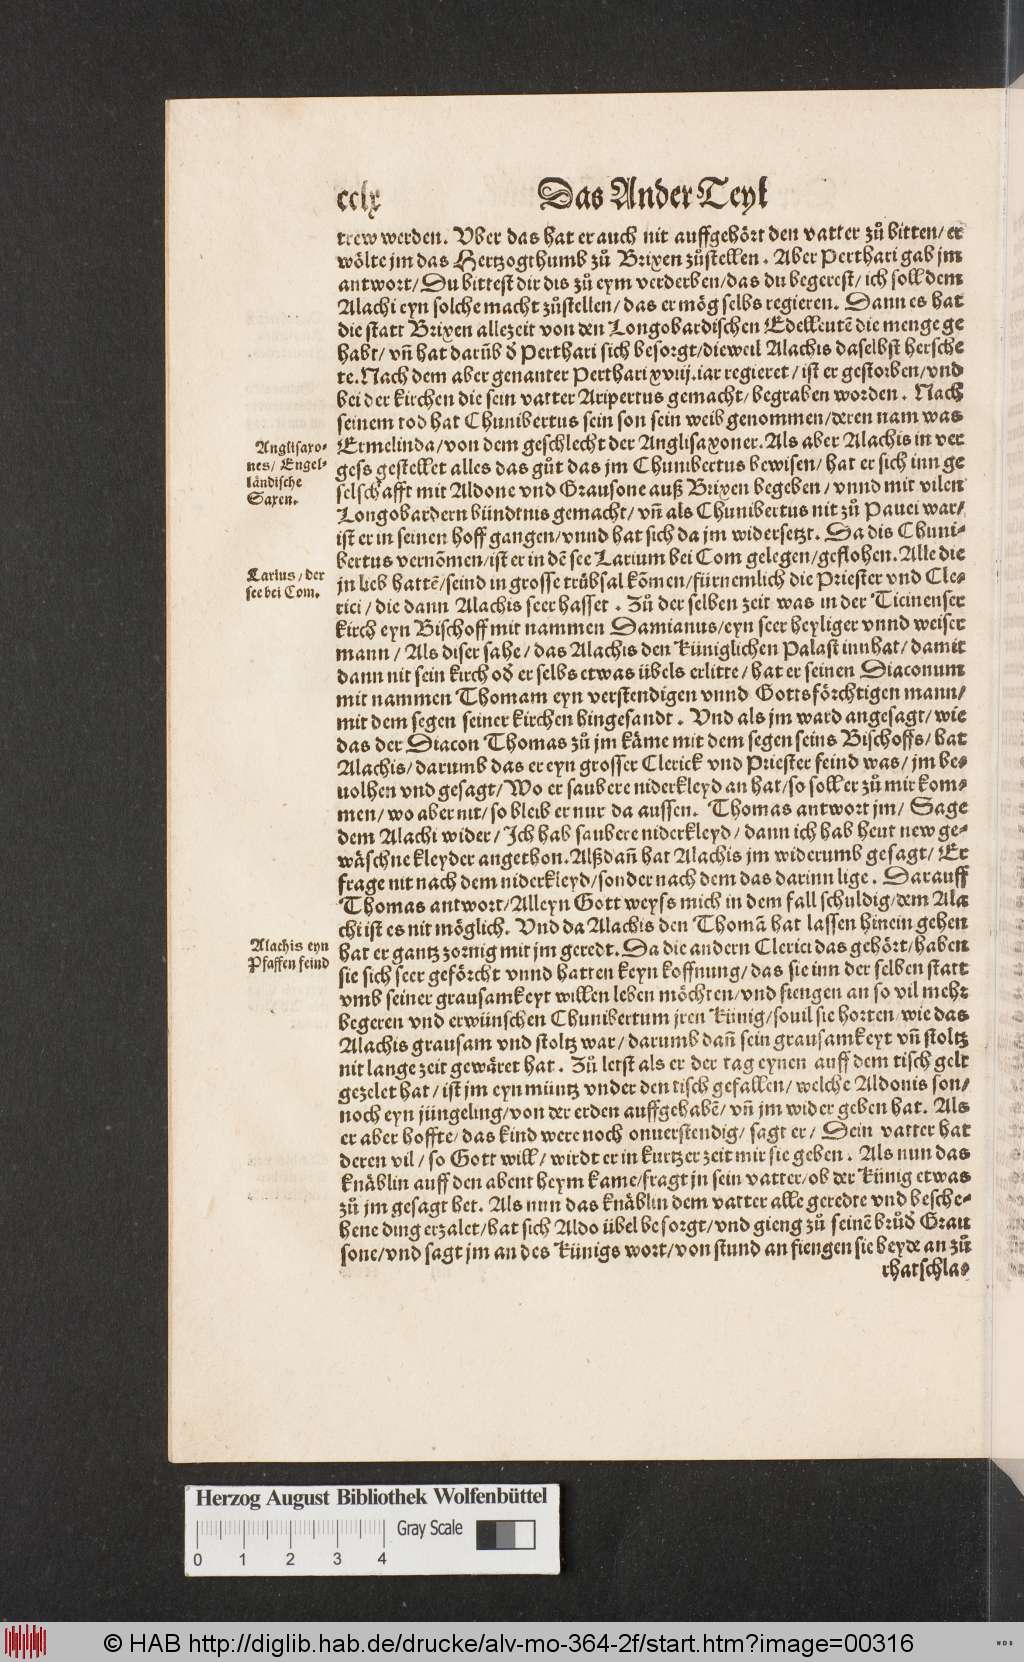 cclx
Das Ander Teyl
trew werden. Vber das hat er auch nit auffgehört den vatter zů bitten/ er
wölte jm das Hertzogthumb zů Brixen zůstellen. Aber Perthari gab jm
antwort/ Du bittest dir dis zů eym verderben/das du begerest/ ich soll dem
Alachi eyn solche macht zůstellen/ das er mög selbs regieren. Dann es hat
die statt Brixen allezeit von den Longobardischen Edelleutē die menge ge
habt/ vñ hat darüb d' Perthari sich besorgt/dieweil Alachis daselbst hersche
te. Nach dem aber genanter Perthari xviij. iar regieret/ ist er gestorben/vnd
bei der kirchen die sein vatter Aripertus gemacht/ begraben worden. Nach
seinem tod hat Chunibertus sein son sein weib genommen/deren nam was
Ermelinda/von dem geschlecht der Anglisaxoner. Als aber Alachis in ver
Anglisaxo-
nes/ Engel-
ländische
Saxen.
gess gestellet alles das gůt das jm Chunibertus bewisen/ hat er sich inn ge
selschafft mit Aldone vnd Grausone auß Brixen begeben/ vnnd mit vilen
Longobardern bündtnis gemacht/ vñ als Chunibertus nit zů Pauei war/
ist er in seinen hoff gangen/vnnd hat sich da jm widersetzt. Da dis Chuni-
bertus vernōmen/ist er in dē see Larium bei Com gelegen/geflohen. Alle die
Larius/ der
see bei Com.
jn lieb hattē/seind in grosse trübsal kōmen/fürnemlich die Priester vnd Cle-
rici/ die dann Alachis seer hasset. Zů der selben zeit was in der Ticinenser
kirch eyn Bischoff mit nammen Damianus/eyn seer heyliger vnnd weiser
mann/ Als diser sahe/ das Alachis den Küniglichen Palast innhat/ damit
dann nit sein kirch od' er selbs etwas übels erlitte/ hat er seinen Diaconum
mit nammen Thomam eyn verstendigen vnnd Gottsförchtigen mann/
mit dem segen seiner kirchen hingesandt. Vnd als jm ward angesagt/ wie
das der Diacon Thomas zů jm käme mit dem segen seins Bischoffs/ hat
Alachis/ darumb das er eyn grosser Clerick vnd Priester feind was/ jm be-
uolhen vnd gesagt/ Wo er saubere niderkleyd an hat/so soll er zů mir kom-
men/ wo aber nit/ so bleib er nur da aussen. Thomas antwort jm/ Sage
dem Alachi wider/ Ich hab saubere niderkleyd/ dann ich hab heut new ge-
wäschne kleyder angethon. Alßdañ hat Alachis jm widerumb gesagt/ Er
frage nit nach dem niderkleyd/sonder nach dem das darinn lige. Darauff
Thomas antwort/Alleyn Gott weyss mich in dem fall schuldig/dem Ala
chi ist es nit möglich. Vnd da Alachis den Thomā hat lassen hinein gehen
hat er gantz zornig mit jm geredt. Da die andern Clerici das gehört/haben
Alachis eyn
Pfaffen feind
sie sich seer geförcht vnnd hatten keyn hoffnung/das sie inn der selben statt
vmb seiner grausamkeyt willen leben möchten/vnd fiengen an so vil mehr
begeren vnd erwünschen Chunibertum jren Künig/souil sie horten/wie das
Alachis grausam vnd stoltz war/ darumb dañ sein grausamkeyt vñ stoltz
nit lange zeit gewäret hat. Zů letst als er der tag eynen auff dem tisch gelt
gezelet hat/ ist jm eyn müntz vnder den tisch gefallen/ welche Aldonis son/
noch eyn jüngeling/von der erden auffgehabē/ vñ jm wider geben hat. Als
er aber hoffte/ das kind were noch onuerstendig/ sagt er/ Dein vatter hat
deren vil/ so Gott will/ wirdt er in kurtzer zeit mir sie geben. Als nun das
knäblin auff den abent heym kame/fragt jn sein vatter/ob der Künig etwas
zů jm gesagt het. Als nun das knäblin dem vatter alle geredte vnd besche-
hene ding erzalet/hat sich Aldo übel besorgt/vnd gieng zů seinē brůd' Grau
sone/vnd sagt jm an des Künigs wort/von stund an fiengen sie beyde an zů
rhatschla-
Herzog August Bibliothek Wolfenbüttel
Gray Scale
0 1 2 3 4
© HAB http://diglib.hab.de/drucke/alv-mo-364-2f/start.htm?image=00316